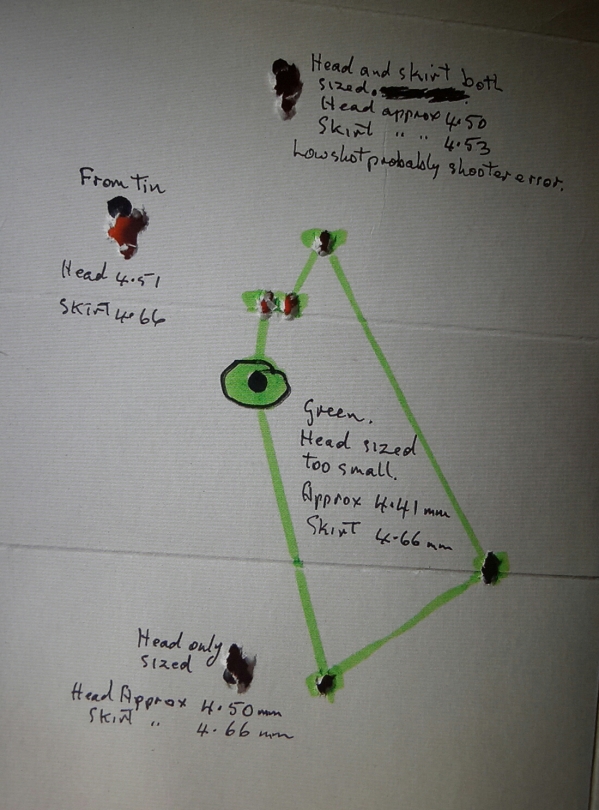 Head and skirt both
sized.
Head approx 4.50
Skirt " " 4.53
Low shot probably shooter error.
From Tin
Head 4.51
Skirt 4.66
Green.
Head sized
too small.
Approx 4.41 mm
Skirt 4.66 mm
Head only
sized
Head Approx 4.50 mm
Skirt " 4.66 mm